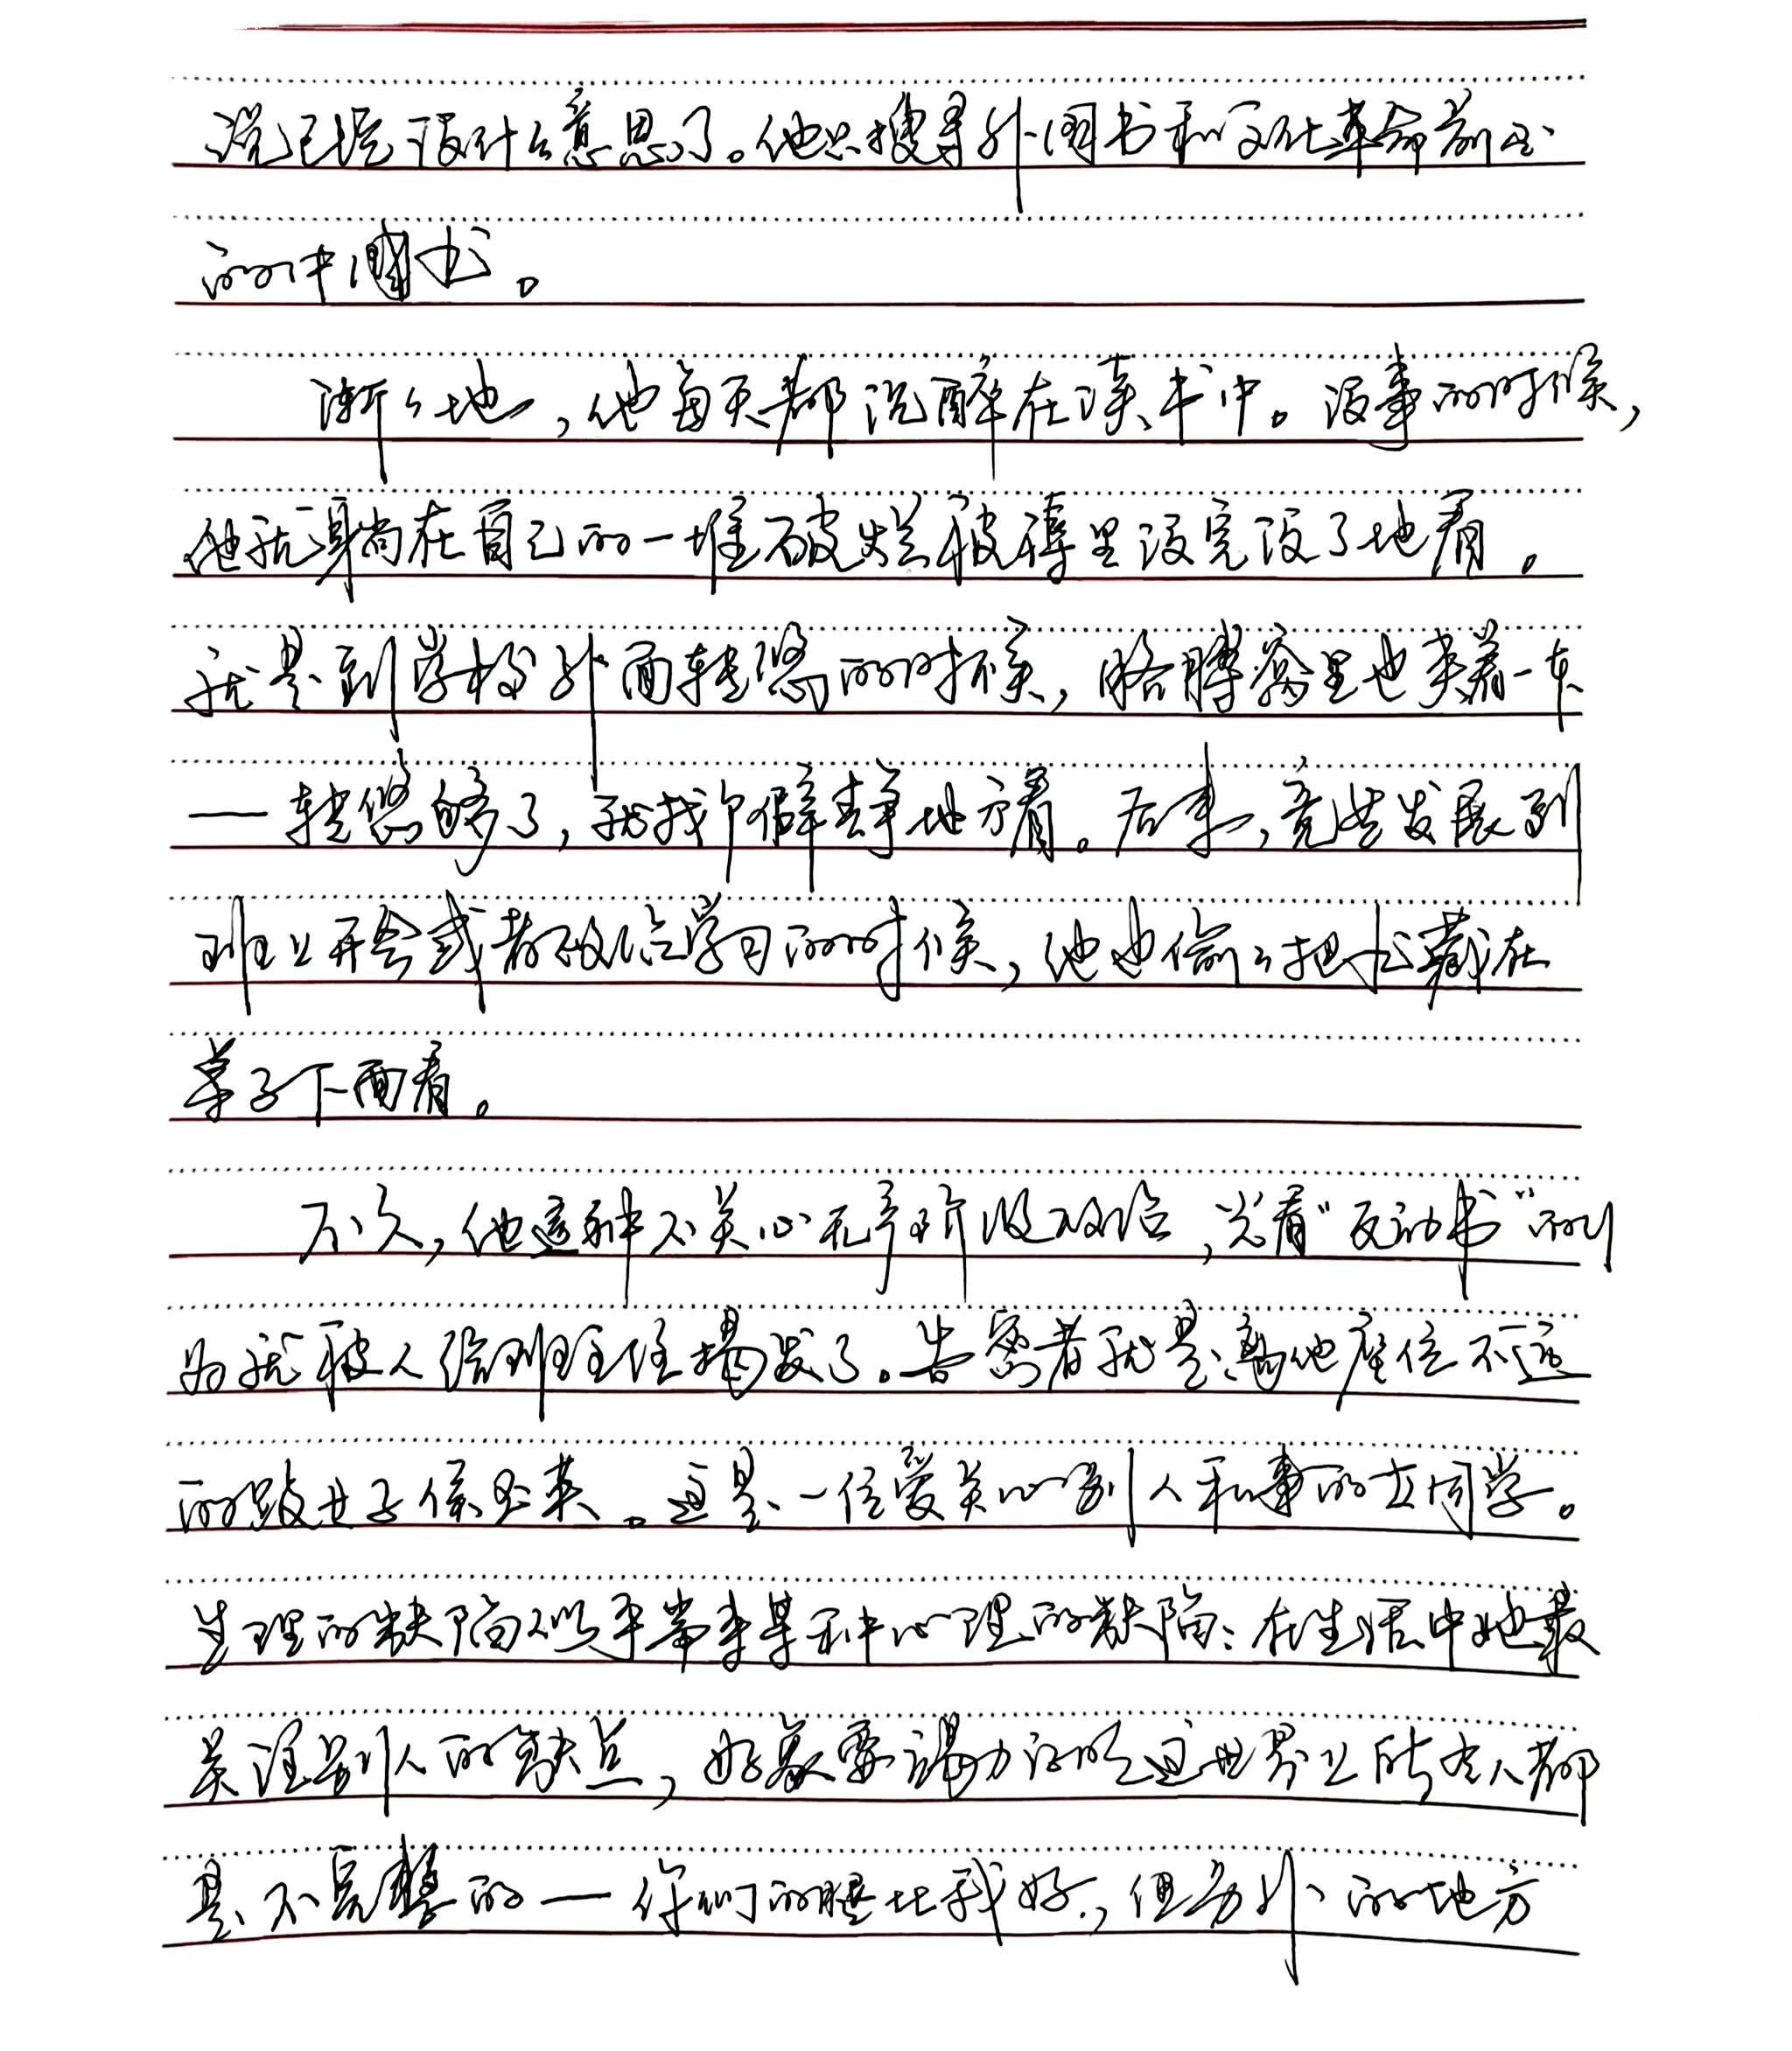 说已经没什么意思了。他只搜寻外国书和文化革命前出
的中国书。
渐々地，他每天都沉醉在读书中。没事的时候，
他就躺在自己的一堆破烂被褥里没完没了地看。
就是到学校外面转悠的时候，胳膊窝里也夹着一本
——转悠够了，就找个僻静地方看。后来，竟然发展到
班上开会或者政治学习的时候，他也偷々把书藏在
桌子下面看。
不久，他这种不关心无产阶级政治，光看“反动书”的行
为就被人给班主任揭发了。告密者就是离他座位不远
的跛女子侯玉英。这是一位爱关心别人私事的女同学。
生理的缺陷似乎带来某种心理的缺陷：在生活中她最
关注别人的缺点，好象要竭力证明这世界上所有人都
是不完整的——你们的腿比我好，但另外的地方